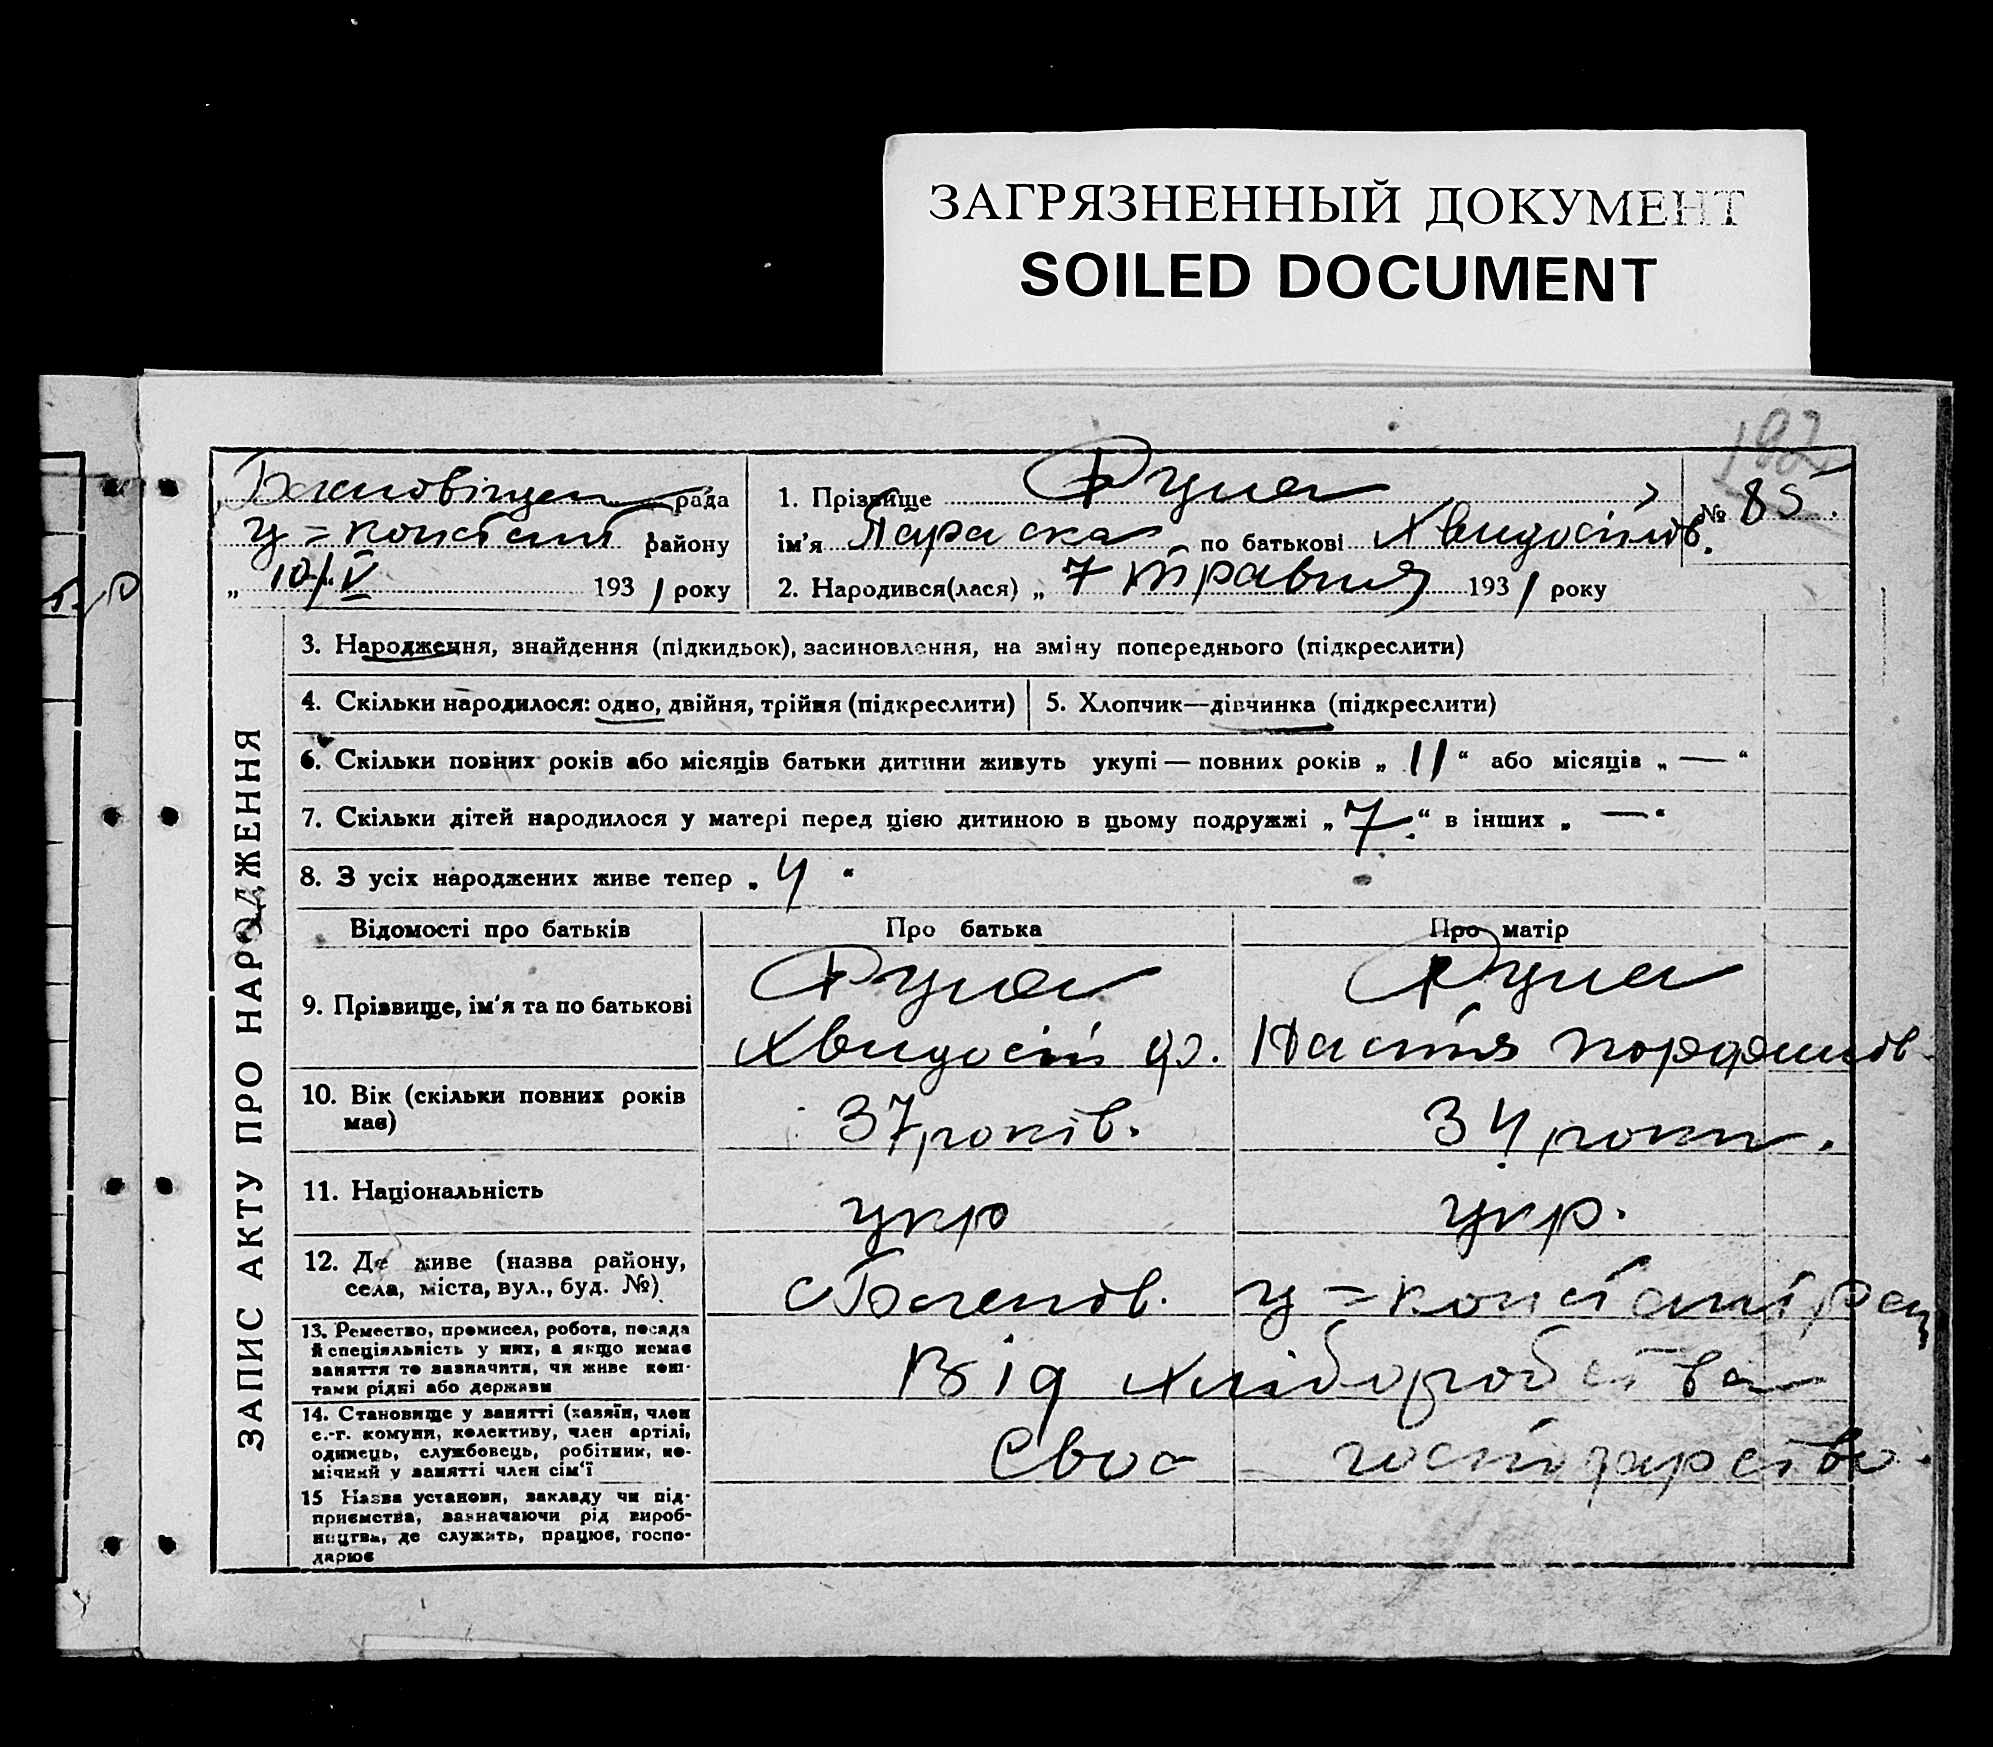 ЗАГРЯЗНЕННЫЙ ДОКУМЕНТ
SOILED DOCUMENT
192
рада
району
„ 10/V 1931 року
1. Прізвище
№ 85.
ім'я Параска по батькові
2. Народився(лася) „ 7 травня 1931 року
ЗАПИС АКТУ ПРО НАРОДЖЕННЯ
3. Народження, знайдення (підкидьок), засиновлення, на зміну попереднього (підкреслити)
4. Скільки народилося: одно, двійня, трійня (підкреслити)
5. Хлопчик—дівчинка (підкреслити)
6. Скільки повних років або місяців батьки дитини живуть укупі — повних років „ 11 “ або місяців „ — “
7. Скільки дітей народилося у матері перед цією дитиною в цьому подружжі „ 7. “ в інших „ — “
8. З усіх народжених живе тепер „ 4 “
Відомості про батьків
Про батька
Про матір
9. Прізвище, ім'я та по батькові
10. Вік (скільки повних років
має)
37 років.
34 роки.
11. Національність
укр
укр.
12. Де живе (назва району,
села, міста, вул., буд. №)
13. Ремество, промисел, робота, посада
й спеціяльність у них, а якщо немає
заняття то зазначити, чи живе кош-
тами рідні або держави
Від хліборобства
14. Становище у занятті (хазяїн, член
с.-г. комуни, колективу, член артілі,
одинець, службовець, робітник, по-
мічний у занятті член сім'ї
Своє господарство.
15 Назва установи, закладу чи під-
приємства, зазначаючи рід вироб-
ництва, де служить, працює, госпо-
дарює